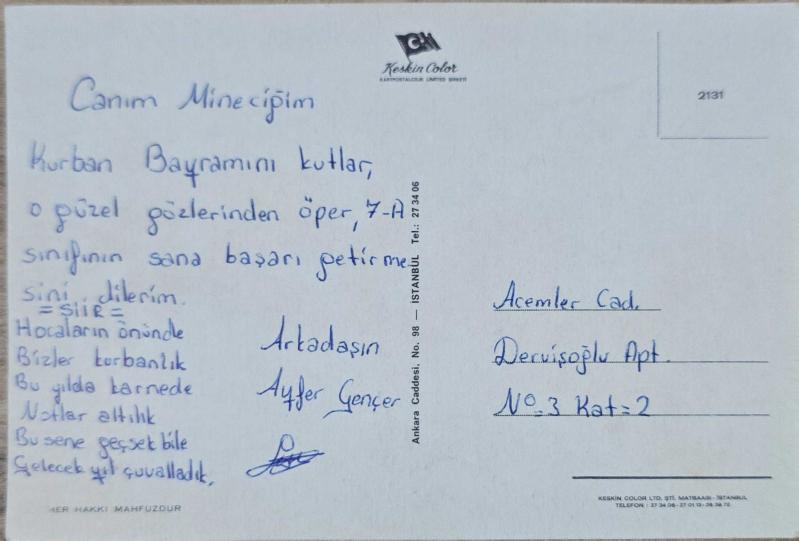 Keskin Color
KARTPOSTALCILIK LIMITED ŞİRKETİ
2131
Canım Mineciğim
Kurban Bayramını kutlar,
o güzel gözlerinden öper, 7-A
sınıfının sana başarı getirme
sini dilerim.
= ŞİİR =
Hocaların önünde
Bizler kurbanlık
Bu yılda karnede
Notlar altılık
Bu sene geçsek bile
Gelecek yıl çuvalladık.
Arkadaşın
Ayfer Gençer
Ankara Caddesi, No. 98 — İSTANBUL Tel.: 27 34 06
Acemler Cad.
Dervişoğlu Apt.
No=3 Kat=2
HER HAKKI MAHFUZDUR
KESKİN COLOR LTD. ŞTİ. MATBAASI - İSTANBUL
TELEFON :